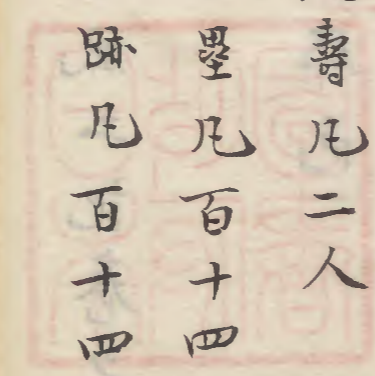 壽凡二人
壘凡百十四
跡凡百十四